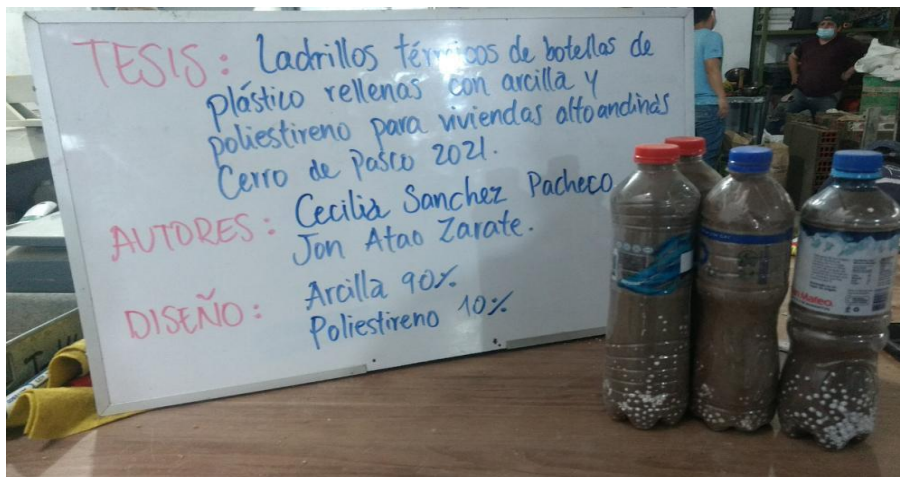 TESIS: Ladrillos térmicos de botellas de
plástico rellenas con arcilla y
poliestireno para viviendas altoandinas
Cerro de Pasco 2021.
AUTORES: Cecilia Sanchez Pacheco
Jon Atao Zarate.
DISEÑO: Arcilla 90%.
Poliestireno 10%.
Mateo